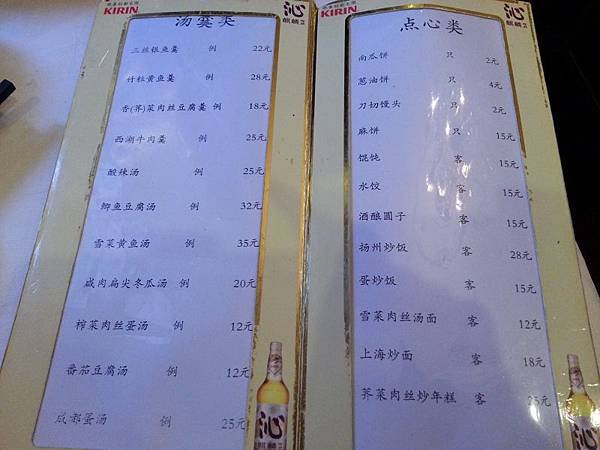 KIRIN
沁
麒麟
汤羹类
三丝银鱼羹 例 22元
竹粒黄鱼羹 例 28元
香(荠)菜肉丝豆腐羹 例 18元
西湖牛肉羹 例 25元
酸辣汤 例 25元
鲫鱼豆腐汤 例 32元
雪菜黄鱼汤 例 35元
咸肉扁尖冬瓜汤 例 20元
榨菜肉丝蛋汤 例 12元
番茄豆腐汤 例 12元
成都蛋汤 例 25元
沁
KIRIN
沁
麒麟
点心类
南瓜饼 只 2元
葱油饼 只 4元
刀切馒头 只 2元
麻饼 只 15元
馄饨 客 15元
水饺 客 15元
酒酿圆子 客 15元
扬州炒饭 客 28元
蛋炒饭 客 15元
雪菜肉丝汤面 客 12元
上海炒面 客 18元
荠菜肉丝炒年糕 客 25元
沁